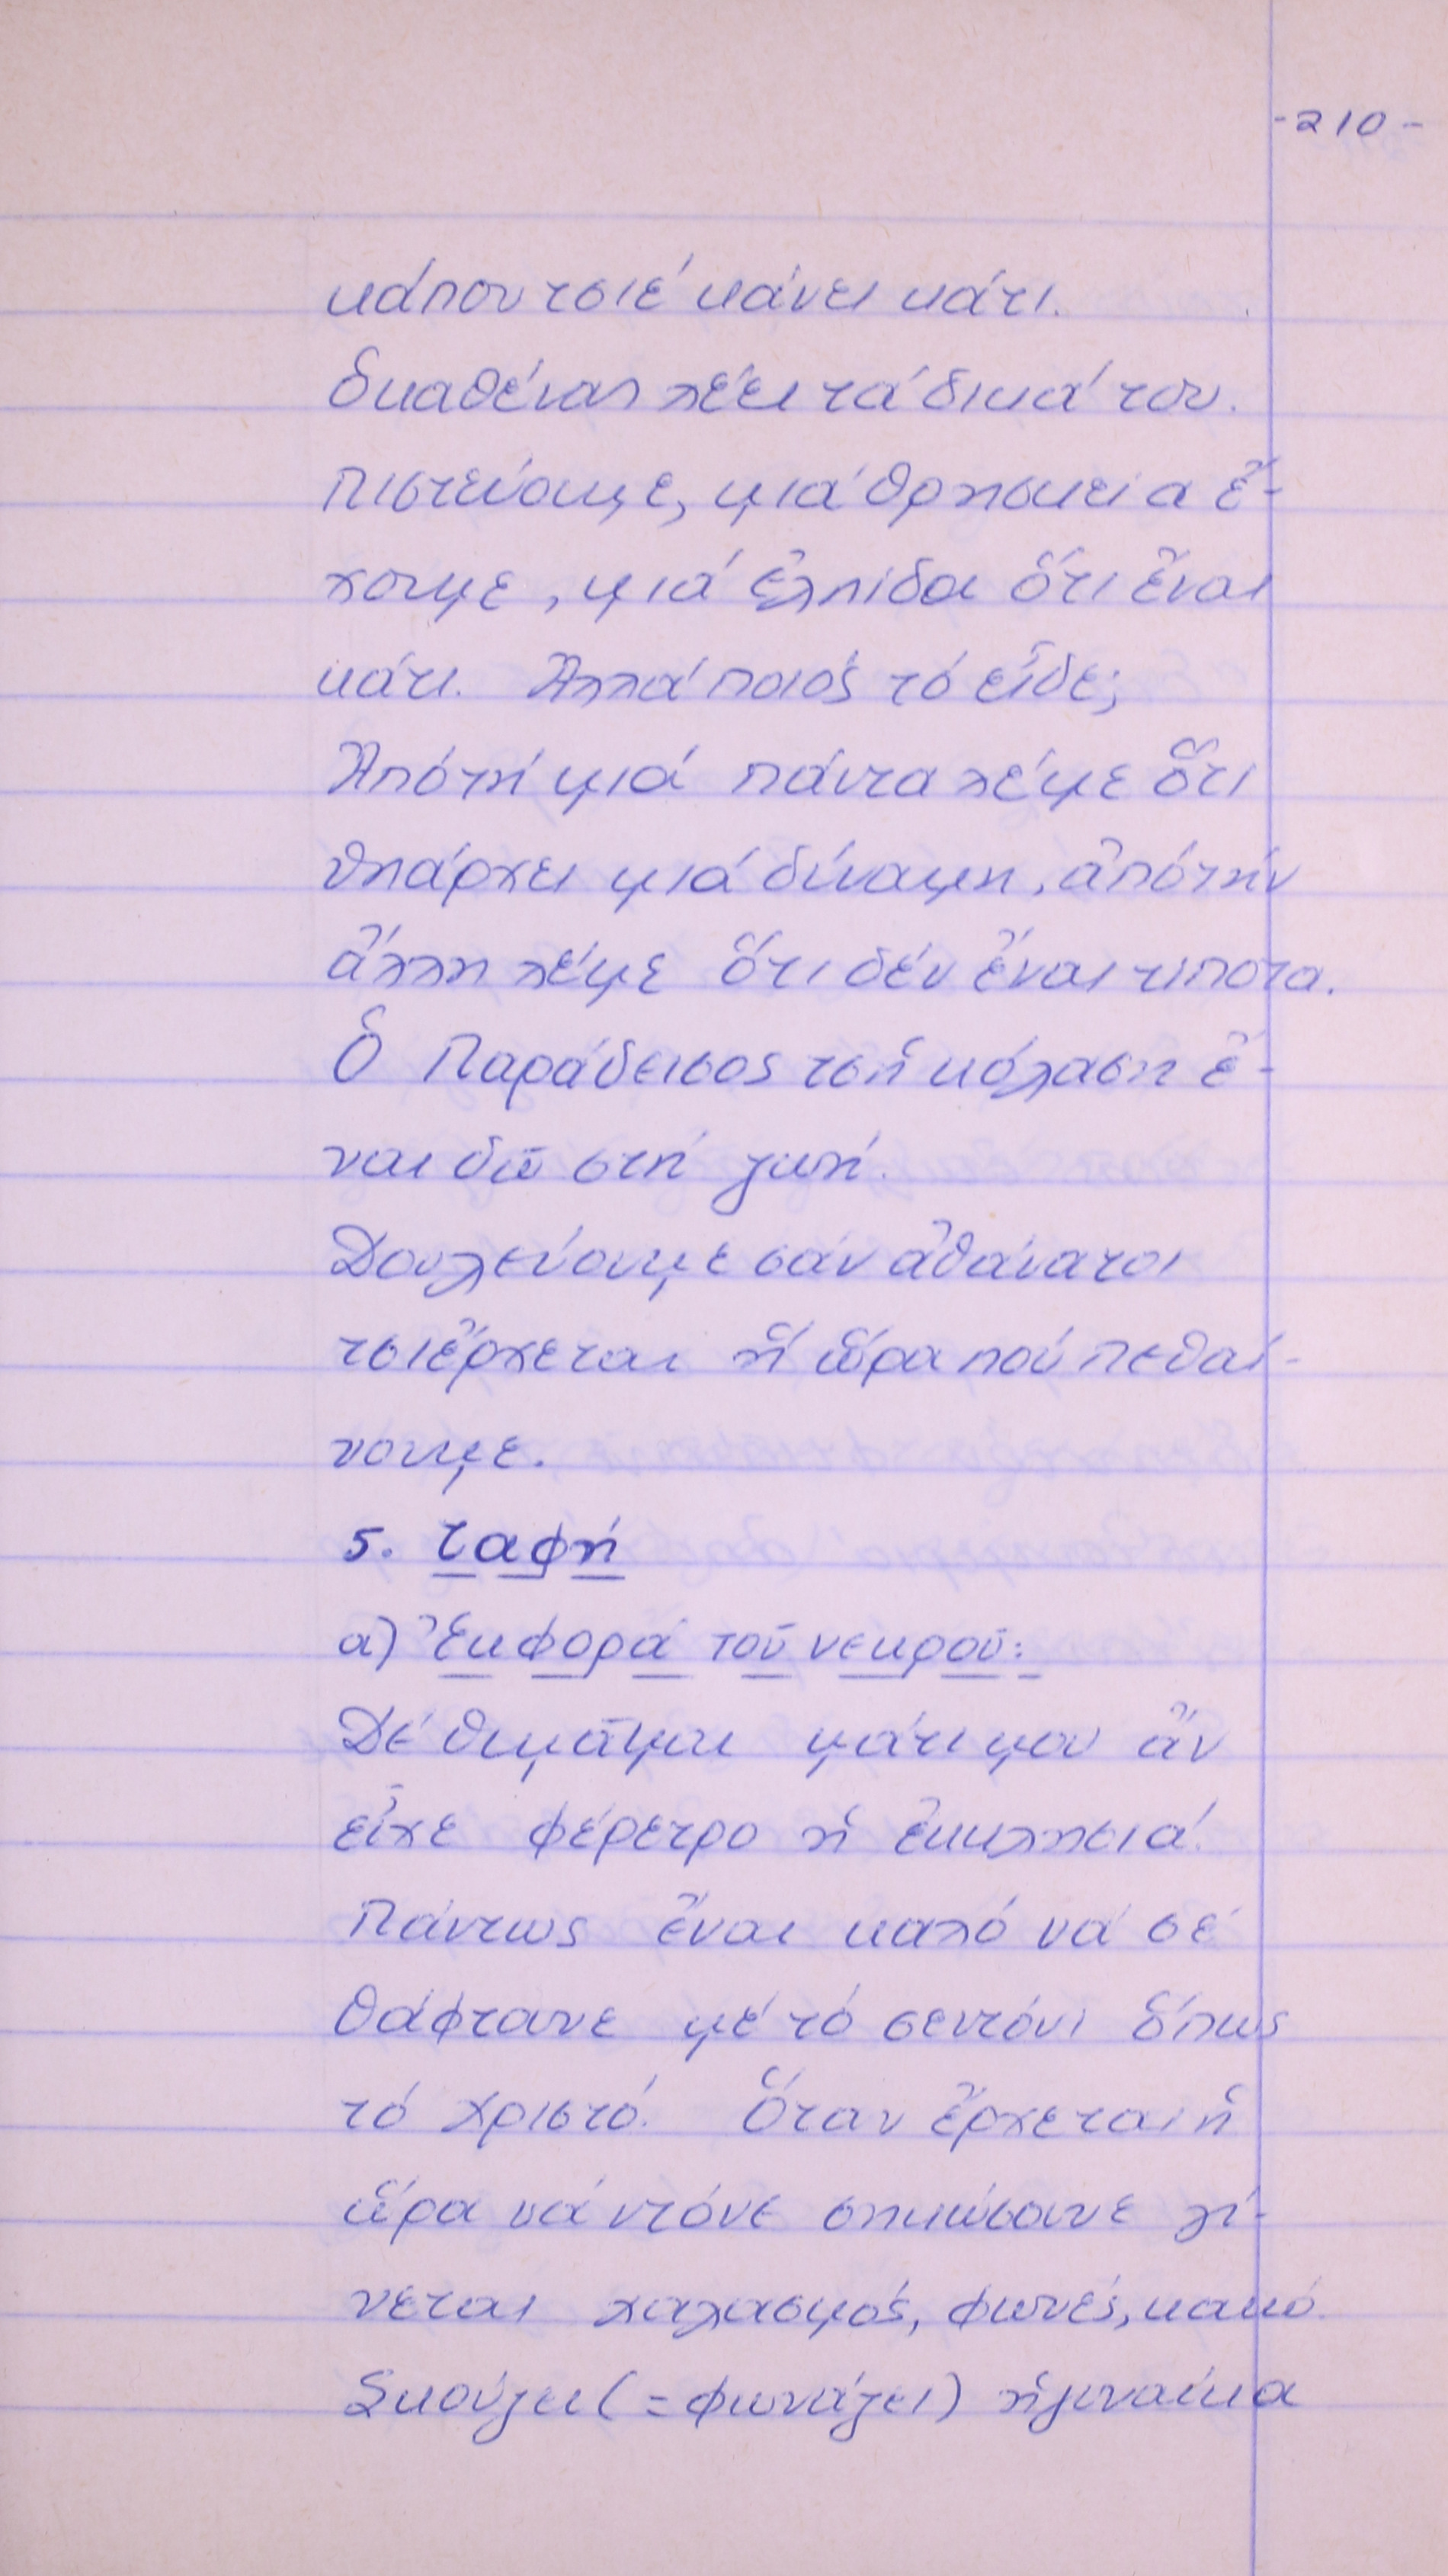 -210-
κάπου τσιέ κάνει κάτι.
Ὁκαθένας λέει τά δικά του.
Πιστεύουμε, μιά θρησκεία ἔ-
χουμε, μιά ἐλπίδα ὅτι ἔναι
κάτι. Ἀλλά ποιός τό εἶδε;
Ἀπό τή μιά πάντα λέμε ὅτι
ὑπάρχει μιά δύναμη, ἀπό τήν
ἄλλη λέμε ὅτι δέν ἔναι τιποτα.
Ὁ Παράδεισος τσ' ἡ κόλαση ἔ-
ναι δῶ στή ζωή.
Δουλεύουμε σάν ἀθάνατοι
τσι ἔρχεται ἡ ὥρα πού πεθαί-
νουμε.
5. Ταφή
α) Ἐκφορά τοῦ νεκροῦ:
Δέ θυμᾶμαι μάτι μου ἄν
εἶχε φέρετρο ἡ ἐκκλησιά.
Πάντως ἔναι καλό νά σέ
θάφτανε μέ τό σεντόνι ὅπως
τό Χριστό. Ὅταν ἔρχεται ἡ
ὥρα νά ντόνε σηκώσουνε γί-
νεται χαλασμός, φωνές, κακό.
Σκούζει (= φωνάζει) ἡ γυναίκα